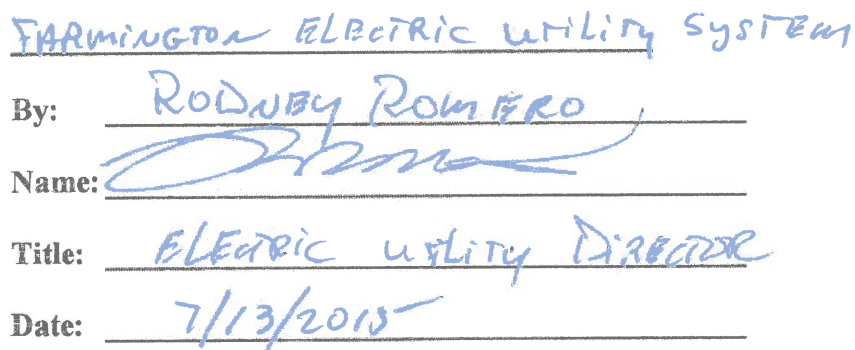 FARMINGTON ELECTRIC UTILITY SYSTEM
By: RODNEY ROMERO
Name:
Title: ELECTRIC UTILITY DIRECTOR
Date: 7/13/2015